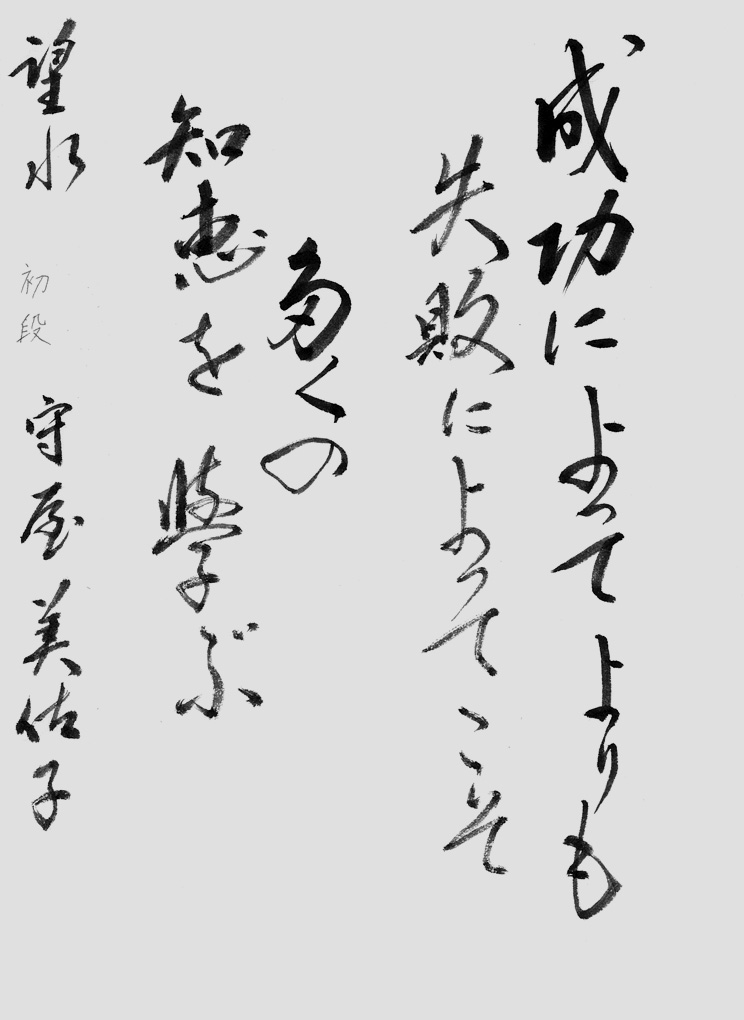 成功によってよりも
失敗によってこそ
多くの
知恵を學ぶ
望水 初段 守屋美佑子